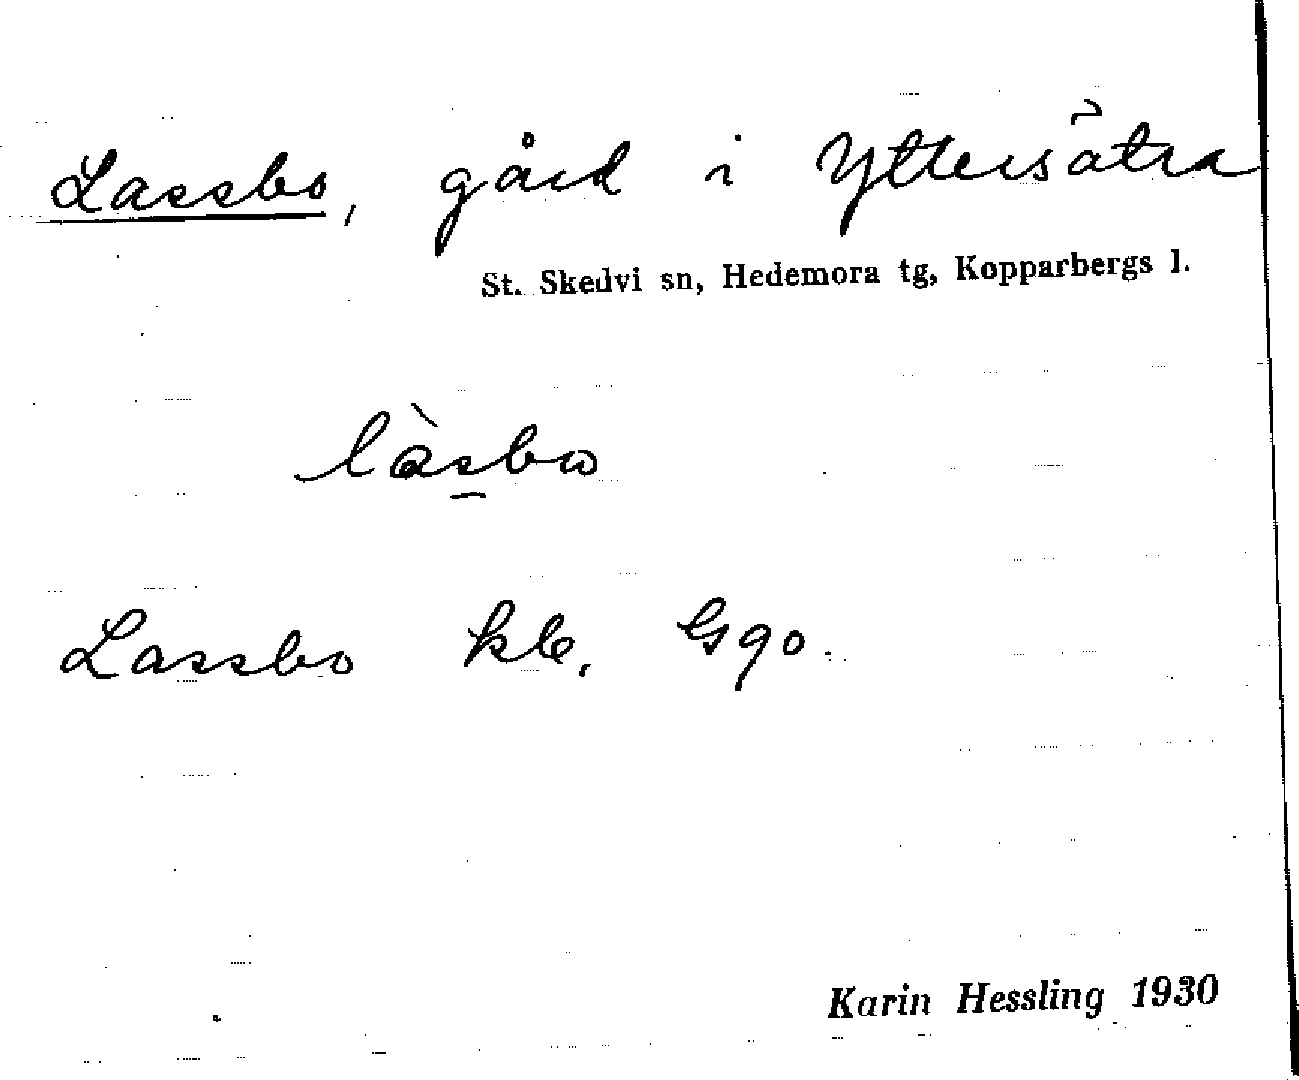 Lassbo, gård i Yttersätra
St. Skedvi sn, Hedemora tg, Kopparbergs l.
làs̠bω
Lassbo kle. Ggo.
Karin Hessling 1930